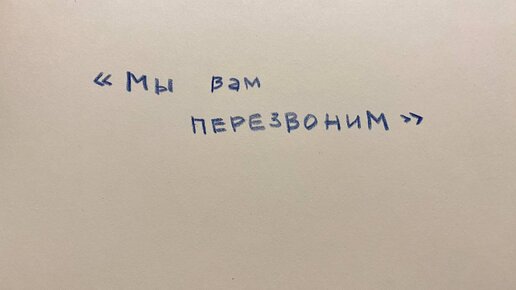 «Мы вам
ПЕРЕЗВОНИМ»